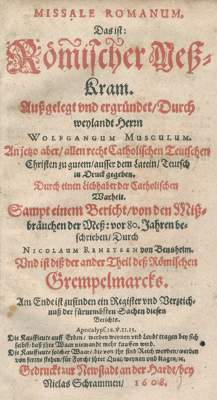 MISSALE ROMANUM,
Das ist:
Römischer Meß-
Kram.
Außgelegt vnd ergründet/ Durch
weylandt Herrn
WOLFGANGUM MUSCULUM.
An jetzo aber/ allen recht Catholischen Teutschen
Christen zu gutem/ ausser dem Latein/ Teutsch
in Druck gegeben.
Durch einen Liebhaber der Catholischen
Warheit.
Sampt einem Bericht/ von den Miß-
bräuchen der Meß: vor 80. Jahren be-
schrieben/ Durch
NICOLAUM REN von Bensheim.
Vnd ist diß der ander Theil deß Römischen
Grempelmarcks.
Am Ende ist zufinden ein Register vnd Verzeich-
nuß der fürnembsten Sachen diesen
Berichts.
Apocalyps. 18.
Die Kauffleute auff Erden/ werden weynen vnd Leydt tragen bey sich
selbst/ daß jhre Waar niemandt mehr kauffen wird.
Die Kauffleute solcher Waar/ die von jhr sind Reich worden/ werden
von ferrns stehen/ für Forcht jhrer Qual/ weynen vnd klagen/ &c.
Gedruckt zur Newstadt an der Hardt/ bey
Niclas Schrammen/ 1608.